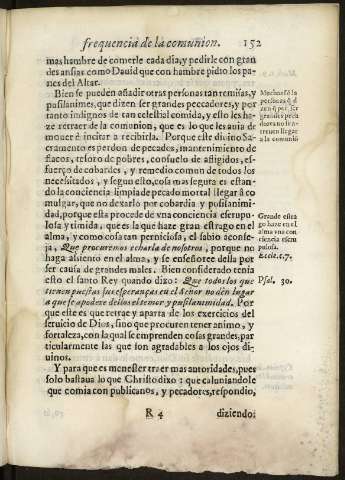 frequencia de la comunion. 152
mas hambre de comerle cada dia, y pedirle con gran
des ansias como Dauid que con hambre pidio los pa
nes del Altar.
Bien se pueden añadir otras personas tan remisas, y
pusilanimes, que dizen ser grandes peccadores, y por
tanto indignos de tan celestial comida, y esto les ha-
ze retraer de la comunion, que es lo que les auia de
mouer è incitar a recibirla. Porque este diuino Sa-
cramento es perdon de pecados, mantenimiento de
flacos, tesoro de pobres, consuelo de afligidos, es-
fuerço de cobardes, y remedio comun de todos los
necesitados, y segun esto, cosa mas segura es estan-
do la conciencia limpia de pecado mortal llegar a co
mulgar, que no dexarlo por cobardia y pusilanimi-
dad, porque esta procede de vna conciencia escrupu-
losa y timida, que es la que haze gran estrago en el
alma, y como cosa tan perniciosa, el sabio aconse-
ja, Que procuremos echarla de nosotros, porque no
haga assiento en el alma, y se enseñoree della por
ser causa de grandes males. Bien considerado tenia
esto el santo Rey quando dixo: Que todos los que
tienen puestas sus esperanças en el Señor no dèn lugar
a que se apodere dellos el temor y pusilanimidad. Por
que este es que retrae y aparta de los exercicios del
seruicio de Dios, sino que procuren tener animo, y
fortaleza, con la qual se emprenden cosas grandes, par
ticularmente las que son agradables a los ojos di-
uinos.
Y para que es menester traer mas autoridades, pues
solo bastaua lo que Christo dixo: que calunian dole
que comia con publicanos, y pecadores, respondio,
R 4 diziendo:
Muchos sõ la
personas q̃ di
zen q̃ por ser
grandes peca
dores no se a-
treuen llegar
a la comuniõ
Grande estra
go haze en el
alma vna con
ciencia escru
pulosa.
Eccle. c. 7.
Psal. 30.